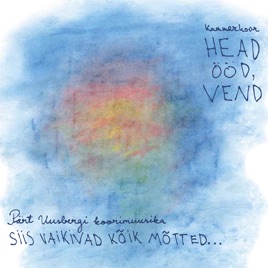 Kammerkoor
HEAD
ÖÖD,
VEND
Pärt Uusbergi koorimuusika
SIIS VAIKIVAD KÕIK MÕTTED...